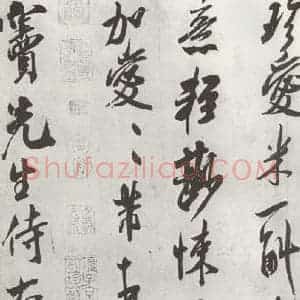 珍愛米一斛
意輕悚
加愛〻芾十
竇先生侍右
Shufaziliao.com